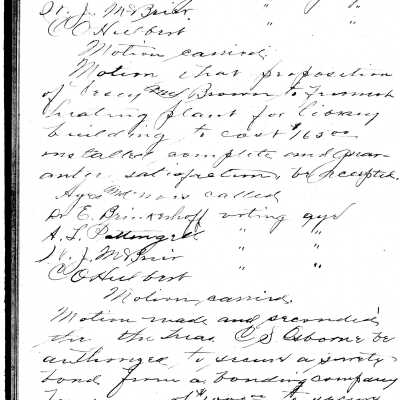 W. J. McBrier " "
C O Hulbert
Motion carried.
Motion that proposition
of McBrown to furnish
heating plant for library
building to cost $165.00
installed complete and guar
antee satisfaction, be accepted.
Ayes and nays called
D. E. Brinkerhoff voting aye
A. L. Pattengill " "
W. J. McBrier " "
C O Hulbert " "
Motion carried.
Motion made and seconded
the treas C S Osborne be
authorized to secure a surety
bond from a bonding company